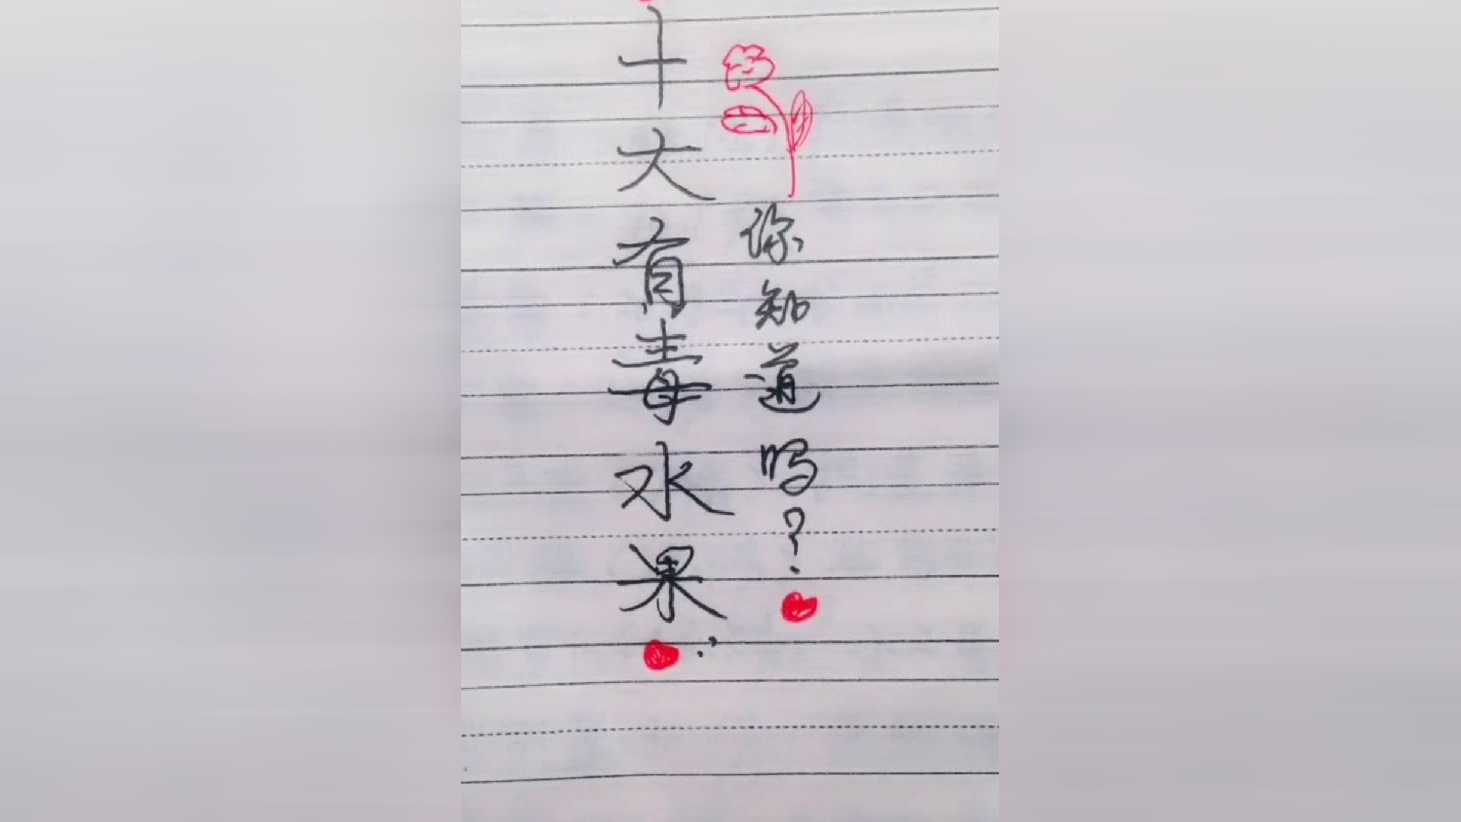 十大有毒水果
你知道吗?